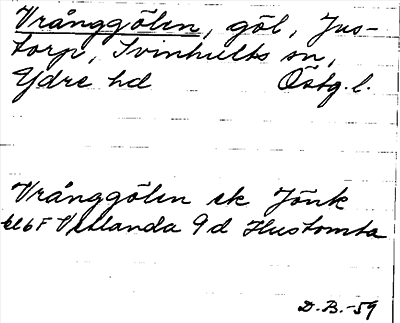 Vrånggölen, göl, Jus-
torp, Svinhults sn,
Ydre hd Östg. l.
Vrånggölen ek Jönk
bl 6F Vetlanda 9d Hustomta
D.B.-59